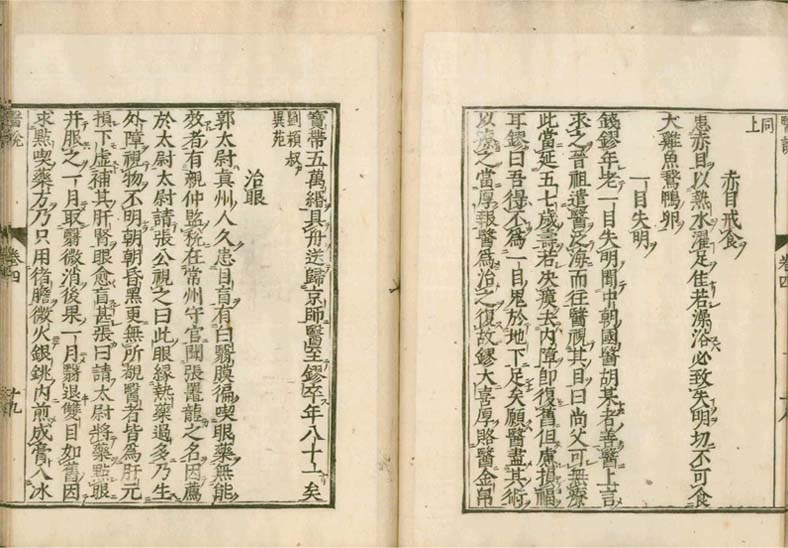 醫說
卷四
同上
赤目戒食
患赤目以熱水濯足佳若澡浴必致失明切不可食
犬雞魚鵞鴨卵
一目失明
錢鏐年老一目失明聞中朝國醫胡某者善醫上言
求之晉祖遣醫泛海而往醫視其目曰尚父可無療
此當延五七歲壽若決瘼去內障即復舊但慮損福
耳鏐曰吾得不為一目鬼於地下足矣願醫盡其術
以療之當厚報醫為治之復故鏐大喜厚賂醫金帛
寶帶五萬緡具舟送歸京師醫至鏐卒年八十一矣
劉穎叔
異苑
治眼
郭太尉真州人久患目盲有白翳膜徧喫眼藥無能
效者有親仲監稅在常州守官聞張鼉龍之名因薦
於太尉太尉請張公視之曰此眼緣熱藥過多乃生
外障視物不明朝朝昏黑更無所覩醫者皆為肝元
損下虛補其肝腎眼愈盲甚張曰請太尉將藥點眼
并服之一月取翳微消後果一月翳退雙目如舊因
求點喫藥方乃只用猪膽微火銀銚內煎成膏入冰
醫說
卷四
十九